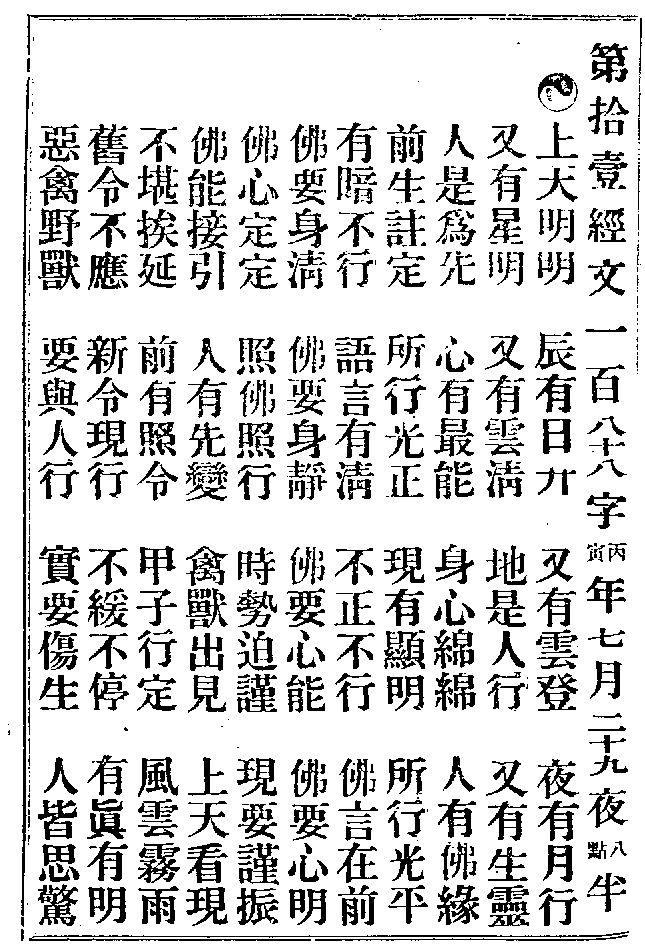 第拾壹經文一百八十八字丙寅年七月二十九夜八點半
上天明明 辰有日升 又有雲登 夜有月行
又有星明 又有雲淸 地是人行 又有生靈
人是爲先 心有最能 身心綿綿 人有佛緣
前生註定 所行光正 現有顯明 所行光平
有暗不行 語言有淸 不正不行 佛言在前
佛要身淸 佛要身靜 佛要心能 佛要心明
佛心定定 照佛照行 時勢迫謹 現要謹振
佛能接引 人有先變 禽獸出見 上天看現
不堪挨延 前有照令 甲子行定 風雲霧雨
舊令不應 新令現行 不緩不停 有眞有明
惡禽野獸 要與人行 實要傷生 人皆思驚